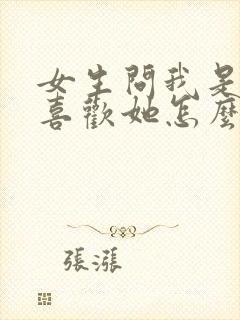 女生問我是
喜歡她怎麼
張漲